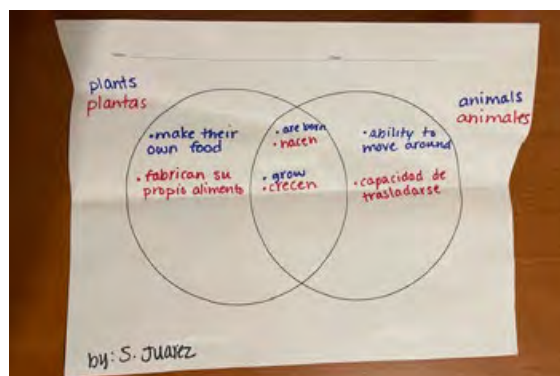 plants
plantas
animals
animales
• make their
own food
• fabrican su
propio alimento
• are born
• nacen
• grow
• crecen
• ability to
move around
• capacidad de
trasladarse
by: S. Juarez